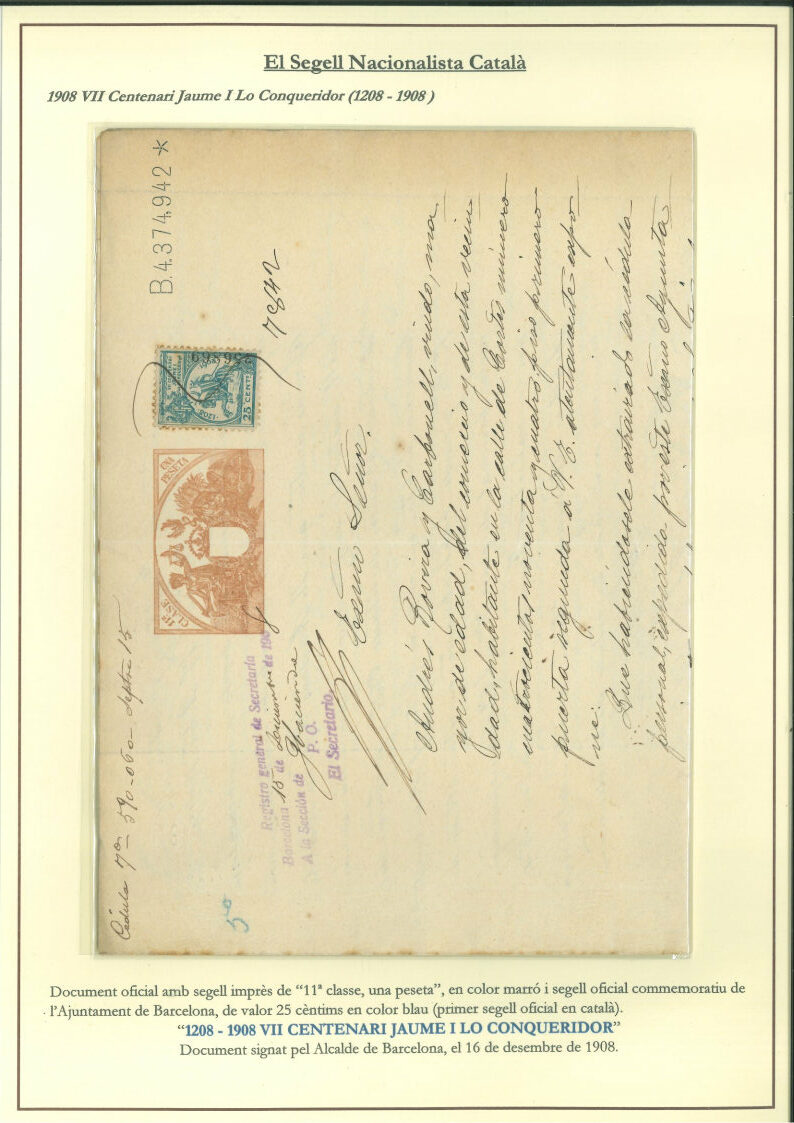 El Segell Nacionalista Català
1908 VII Centenari Jaume I Lo Conqueridor (1208 - 1908 )
B.4.374.942 *
Cédula 7ª 590-060 - Septre 15
UNA PESETA
11ª CLASE
258689
1208
25 CENT
7842
5º
Registro general de Secretaría
Barcelona 15 de Diciembre de 1908
A la Sección de Hacienda
P. O.
El Secretario,
Exmo Señor.
Andrés Rovira y Carbonell, viudo, ma
yor de edad, del comercio y de esta vecin
dad, habitante en la calle de Cortes número
cuatrocientos noventa y cuatro piso primero
puerta segunda á V. E. atentamente expo
ne:
Que habiéndosele extraviado su cédula
personal, expedida por este Exmo Ayunta
Document oficial amb segell imprès de “11ª classe, una peseta”, en color marró i segell oficial commemoratiu de
l’Ajuntament de Barcelona, de valor 25 cèntims en color blau (primer segell oficial en català).
“1208 - 1908 VII CENTENARI JAUME I LO CONQUERIDOR”
Document signat pel Alcalde de Barcelona, el 16 de desembre de 1908.